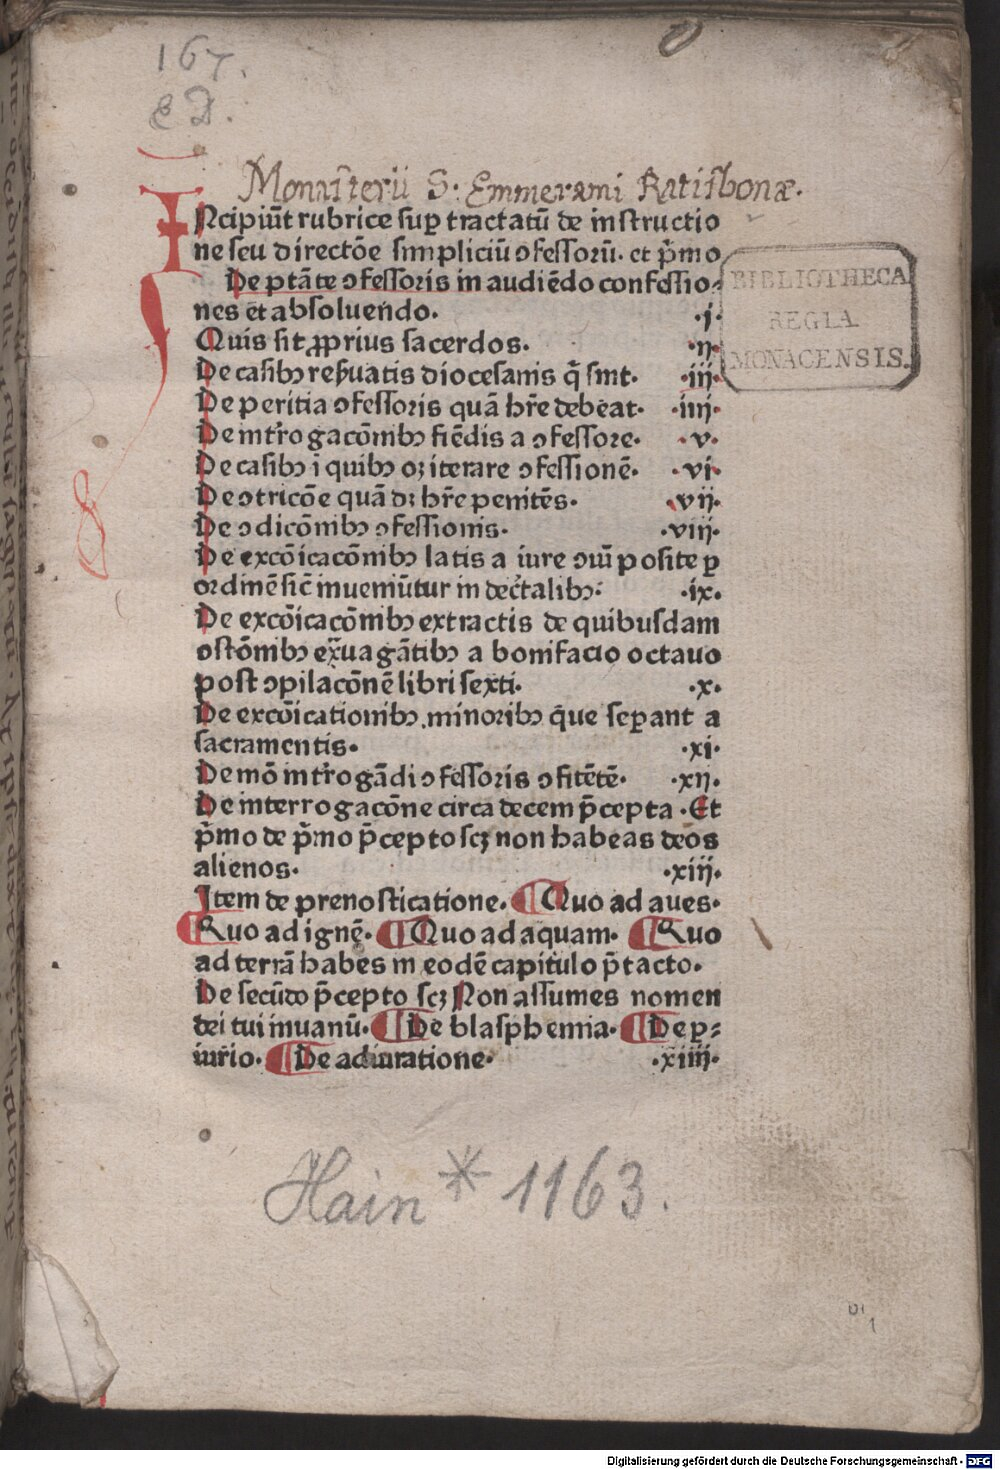 167.
Monasterii S. Emmerami Ratisbonæ.
INcipiūt rubrice sup tractatū de instructio
ne seu directōe simpliciū ꝯfessorū. et p̄mo
De ptāte ꝯfessoris in audiēdo confessio-
nes et absoluendo. .j.
Quis sit ꝓprius sacerdos. .ij.
De casibꝫ reꝫuatis diocesanis q̄ sint. .iij.
De peritia ꝯfessoris quā hr̄e debeat. .iiij.
De int̄rogacōnibꝫ fiēdis a ꝯfessore. .v.
De casibꝫ ī quibꝫ oꝫ iterare ꝯfessionē. .vi.
De ꝯtricōe quā dꝫ hr̄e penitēs. .vij.
De ꝯdicōnibꝫ ꝯfessionis. .viij.
De excōicacōnibꝫ latis a iure ꝯūī posite ꝑ
ordinē sic̄ inueniūtur in dec̄talibꝫ: .ix.
De excōicacōnibꝫ extractis de quibusdam
ꝯstōnibꝫ ex̄uagātibꝫ a bonifacio octauo
post ꝯpilacōnē libri sexti. .x.
De excōicationibꝫ.minoribꝫ q̄ue seꝑant a
sacramentis. .xi.
De mō int̄rogādi ꝯfessoris ꝯfitētē. .xij.
De interrogacōne circa decem p̄cepta .Et
p̄mo de p̄mo p̄cepto scꝫ non habeas deos
alienos. .xiij.
Item de prenosticatione. ¶ Quo ad aues.
¶ Quo ad ignē. ¶ Quo ad aquam. ¶ Quo
ad terrā habes in eodē capitulo p̄tacto.
De secūdo p̄cepto scꝫ Non assumes nomen
dei tui inuanū. ¶ De blasphemia. ¶ De ꝑ-
iurio. ¶ De adiuratione. .xiiij.
BIBLIOTHECA
REGIA
MONACENSIS.
Hain * 1163.
1
Digitalisierung gefördert durch die Deutsche Forschungsgemeinschaft - DFG